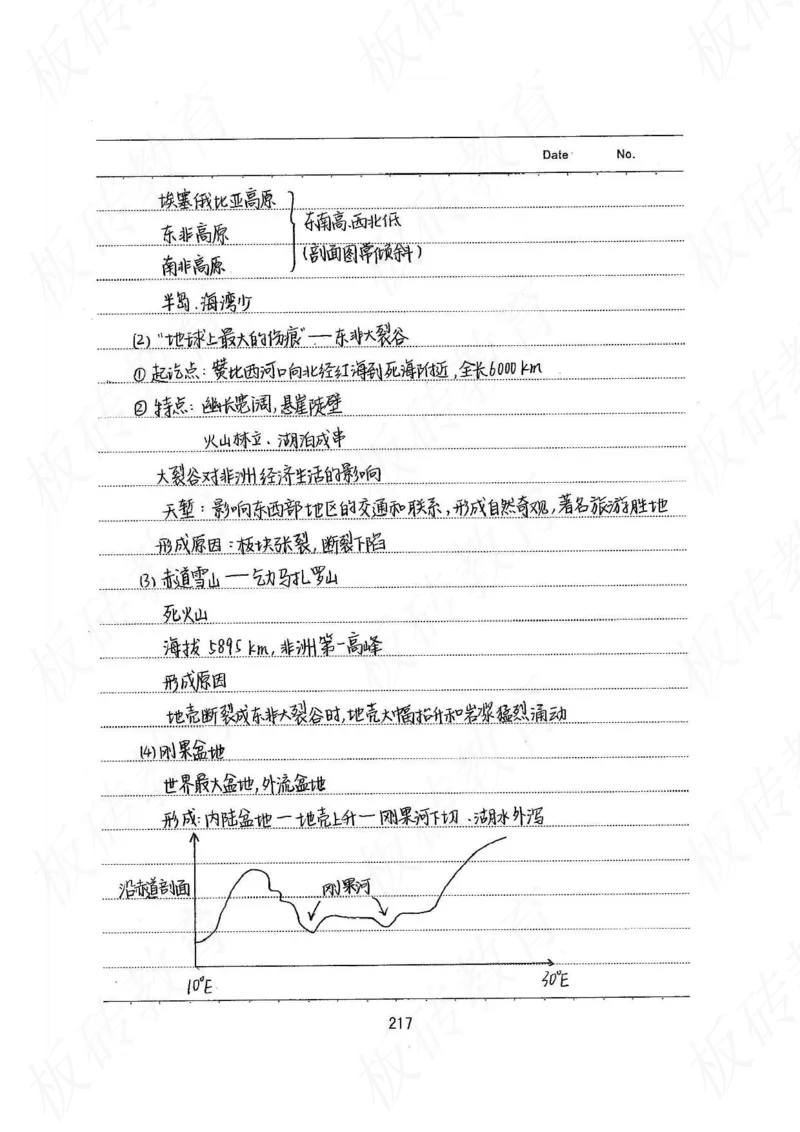 Date No.
埃塞俄比亚高原
东非高原
南非高原
东南高、西北低
(剖面图常倾斜)
半岛、海湾少
(2) "地球上最大的伤痕"——东非大裂谷
① 起讫点：赞比西河口向北经红海到死海附近，全长6000 km
② 特点：幽长宽阔，悬崖陡壁
火山林立、湖泊成串
大裂谷对非洲经济生活的影响
天堑：影响东西部地区的交通和联系，形成自然奇观，著名旅游胜地
形成原因：板块张裂，断裂下陷
(3) 赤道雪山——乞力马扎罗山
死火山
海拔 5895 km，非洲第一高峰
形成原因
地壳断裂成东非大裂谷时，地壳大幅抬升和岩浆猛烈涌动
(4) 刚果盆地
世界最大盆地，外流盆地
形成：内陆盆地—地壳上升—刚果河下切、湖水外泻
沿赤道剖面
刚果河
10°E
30°E
217
板砖教育